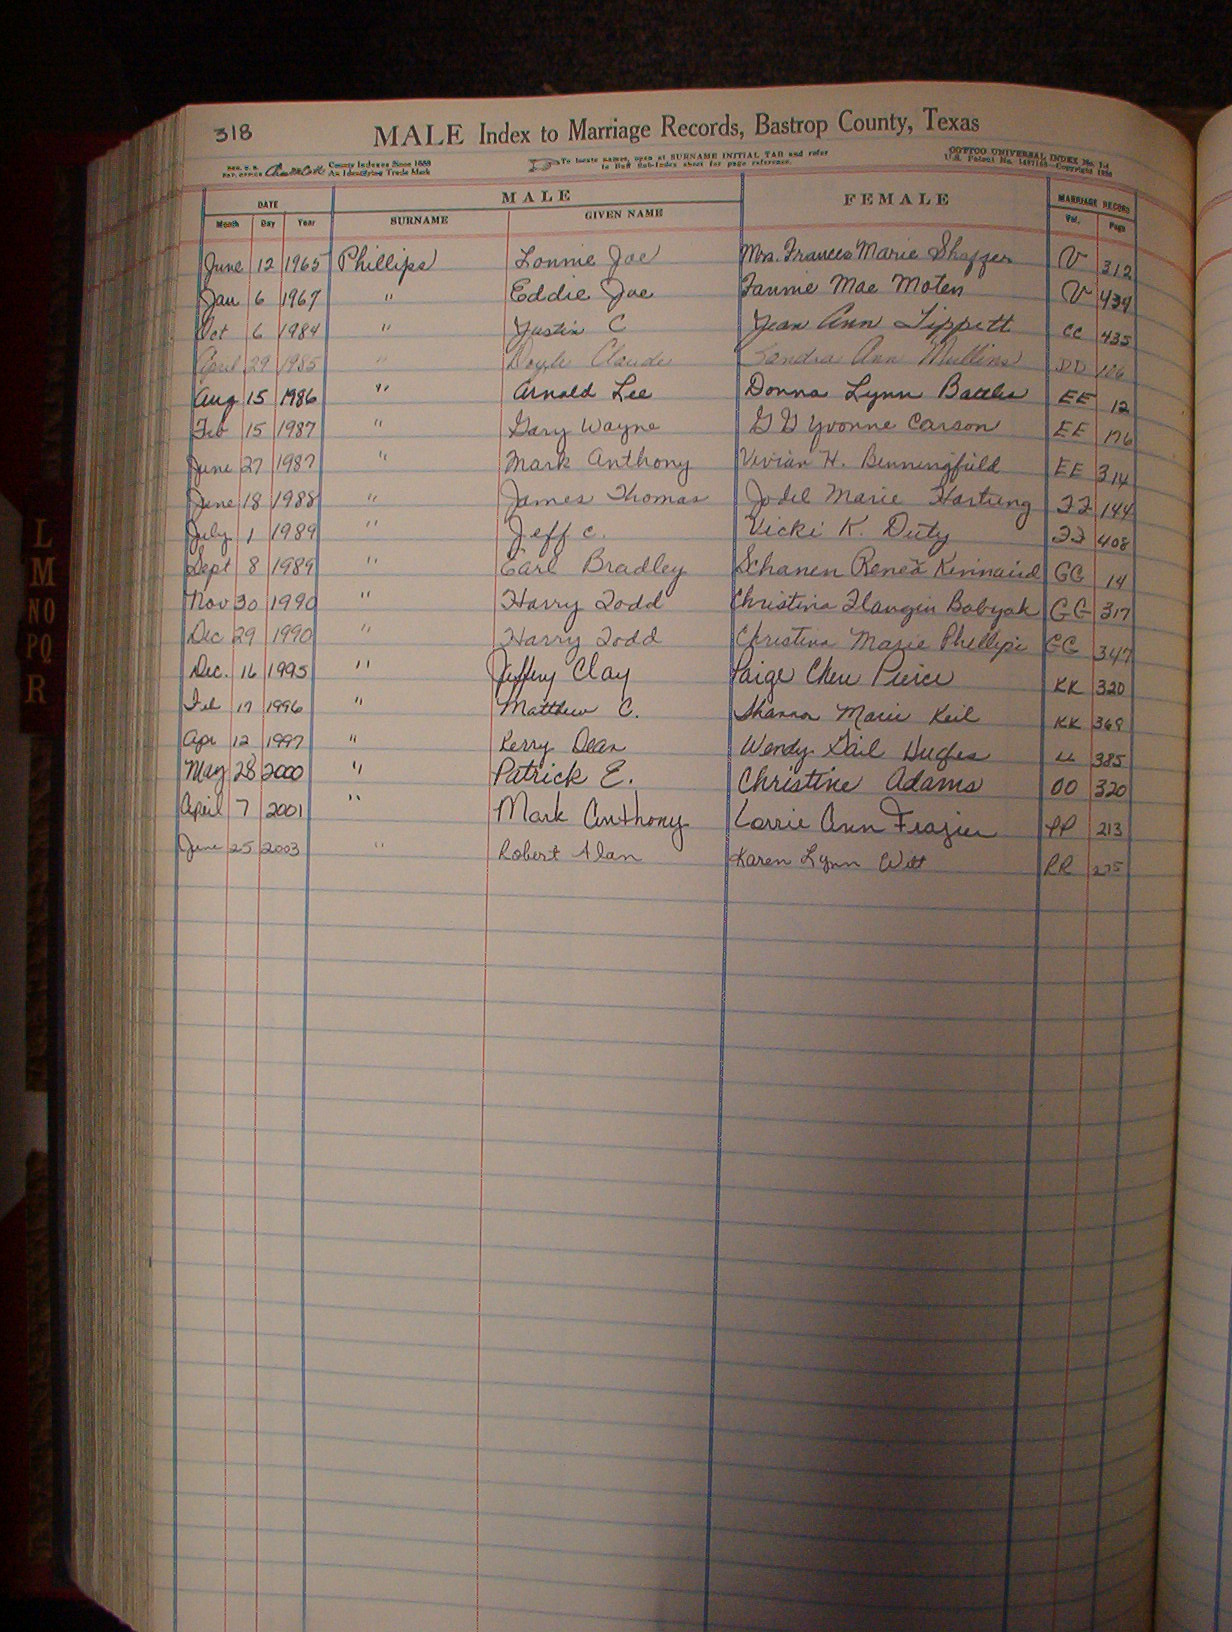 318
MALE Index to Marriage Records, Bastrop County, Texas
County Indexes Since 1888
An Identifying Trade Mark
To locate names, open at SURNAME INITIAL TAB and refer
to Sub-Index sheet for page reference.
COTTCO UNIVERSAL INDEX
U. S. Patent No.
DATE MALE FEMALE MARRIAGE RECORD
Month Day Year SURNAME GIVEN NAME Vol. Page
June 12 1965 Phillips Lonnie Joe Mrs. Frances Marie Shaffer V 312
Jan 6 1967 " Eddie Joe Fannie Mae Moten V 434
Oct 6 1984 " Justin C Jean Ann Tippett CC 435
April 29 1985 " Doyle Claude Sandra Ann Mullins DD 126
Aug 15 1986 " Arnold Lee Donna Lynn Battles EE 12
Feb 15 1987 " Gary Wayne Yvonne Carson EE 176
June 27 1987 " Mark Anthony Vivian H. Benningfield EE 314
June 18 1988 " James Thomas Jodel Marie Hartung FF 144
July 1 1989 " Jeff C. Vicki K. Duty FF 408
Sept 8 1989 " Earl Bradley Schanen Renea Kinnaird GG 14
Nov 30 1990 " Harry Todd Christina Babyak GG 317
Dec 29 1990 " Harry Todd Christina Marie Phillips GG 347
Dec. 16 1995 " Jeffery Clay Paige Cheri Pierce KK 320
Feb 17 1996 " Matthew C. Shanna Marie Keil KK 369
Apr 12 1997 " Perry Dean Wendy Gail Hughes LL 385
May 28 2000 " Patrick E. Christine Adams OO 320
April 7 2001 " Mark Anthony Lorrie Ann Frazier PP 213
June 25 2003 " Robert Alan Karen Lynn Witt RR 275
L
M
NO
PQ
R